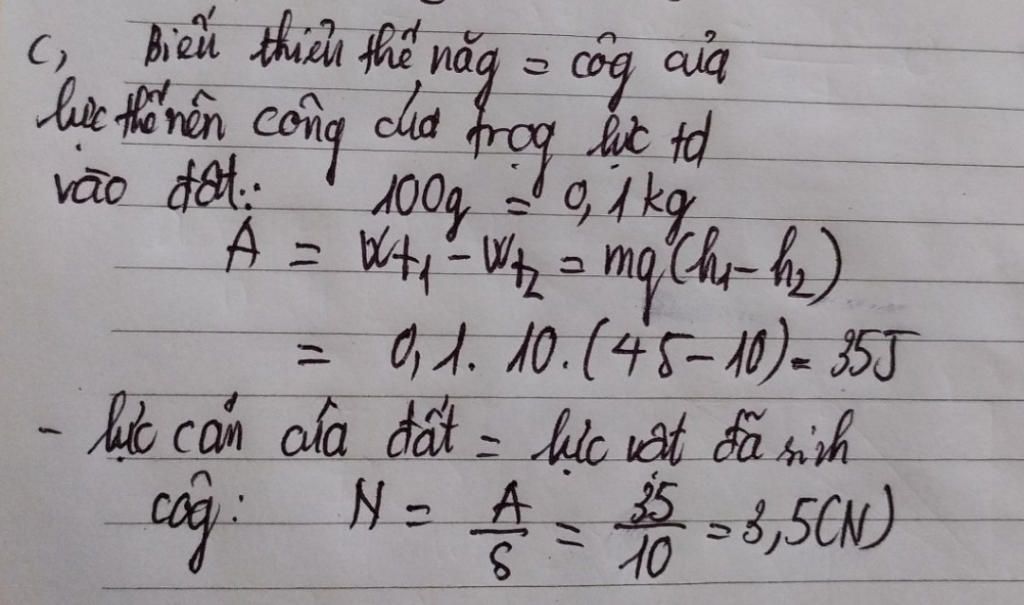 c, Biến thiên thế năg = côg của
lực thế nên công của trọg lực td
vào đất: 100g = 0,1kg
A = Wt1 - Wt2 = mg(h1 - h2)
= 0,1. 10. (45 - 10) = 35J
- lực cản của đất = lực vật đã sinh
côg: N = A/S = 35/10 = 3,5(N)